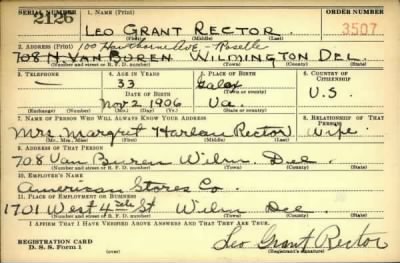 SERIAL NUMBER 2126 ORDER NUMBER 3507
LEO GRANT RECTOR
(First) (Middle) (Last)
2. ADDRESS (Print) 100 Hawthorne Ave. - Roselle
708 N. VAN BUREN WILMINGTON DEL.
(Number and street or R. F. D. number) (Town) (County) (State)
3. TELEPHONE 4. AGE IN YEARS 5. PLACE OF BIRTH 6. COUNTRY OF CITIZENSHIP
— 33 Galax
DATE OF BIRTH (Town or county) U.S.
Nov 2 1906 Va.
(Exchange) (Number) (Mo.) (Day) (Yr.) (State or country)
7. NAME OF PERSON WHO WILL ALWAYS KNOW YOUR ADDRESS 8. RELATIONSHIP OF THAT PERSON
Mrs. Margret Harlan Rector Wife
(Mr., Mrs., Miss) (First) (Middle) (Last)
9. ADDRESS OF THAT PERSON
708 Van Buren Wilm. Del
(Number and street or R. F. D. number) (Town) (County) (State)
10. EMPLOYER'S NAME
American Stores Co.
11. PLACE OF EMPLOYMENT OR BUSINESS
1701 West 4th St Wilm Del
(Number and street or R. F. D. number) (Town) (County) (State)
I AFFIRM THAT I HAVE VERIFIED ABOVE ANSWERS AND THAT THEY ARE TRUE.
REGISTRATION CARD Leo Grant Rector
D. S. S. Form 1 (Registrant's signature)